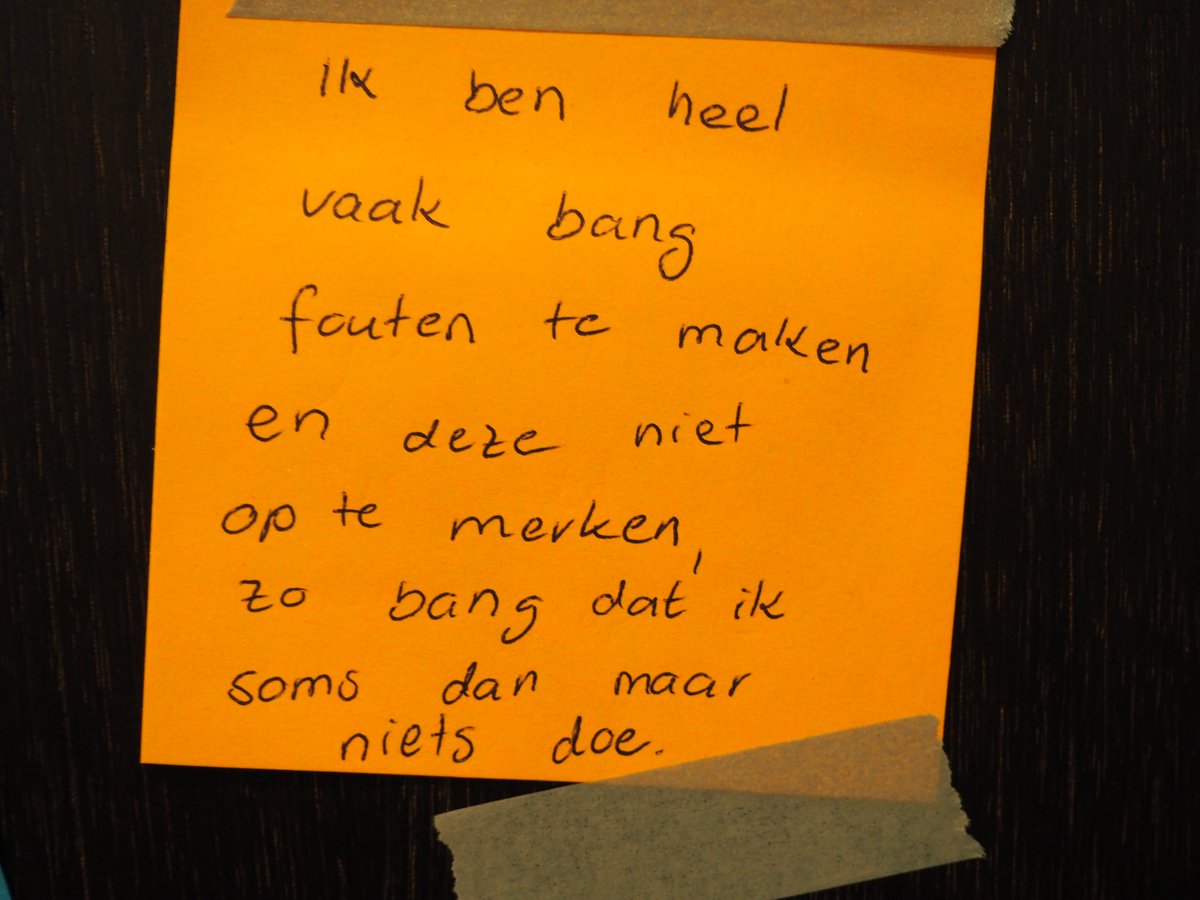 ik ben heel
vaak bang
fouten te maken
en deze niet
op te merken,
zo bang dat ik
soms dan maar
niets doe.